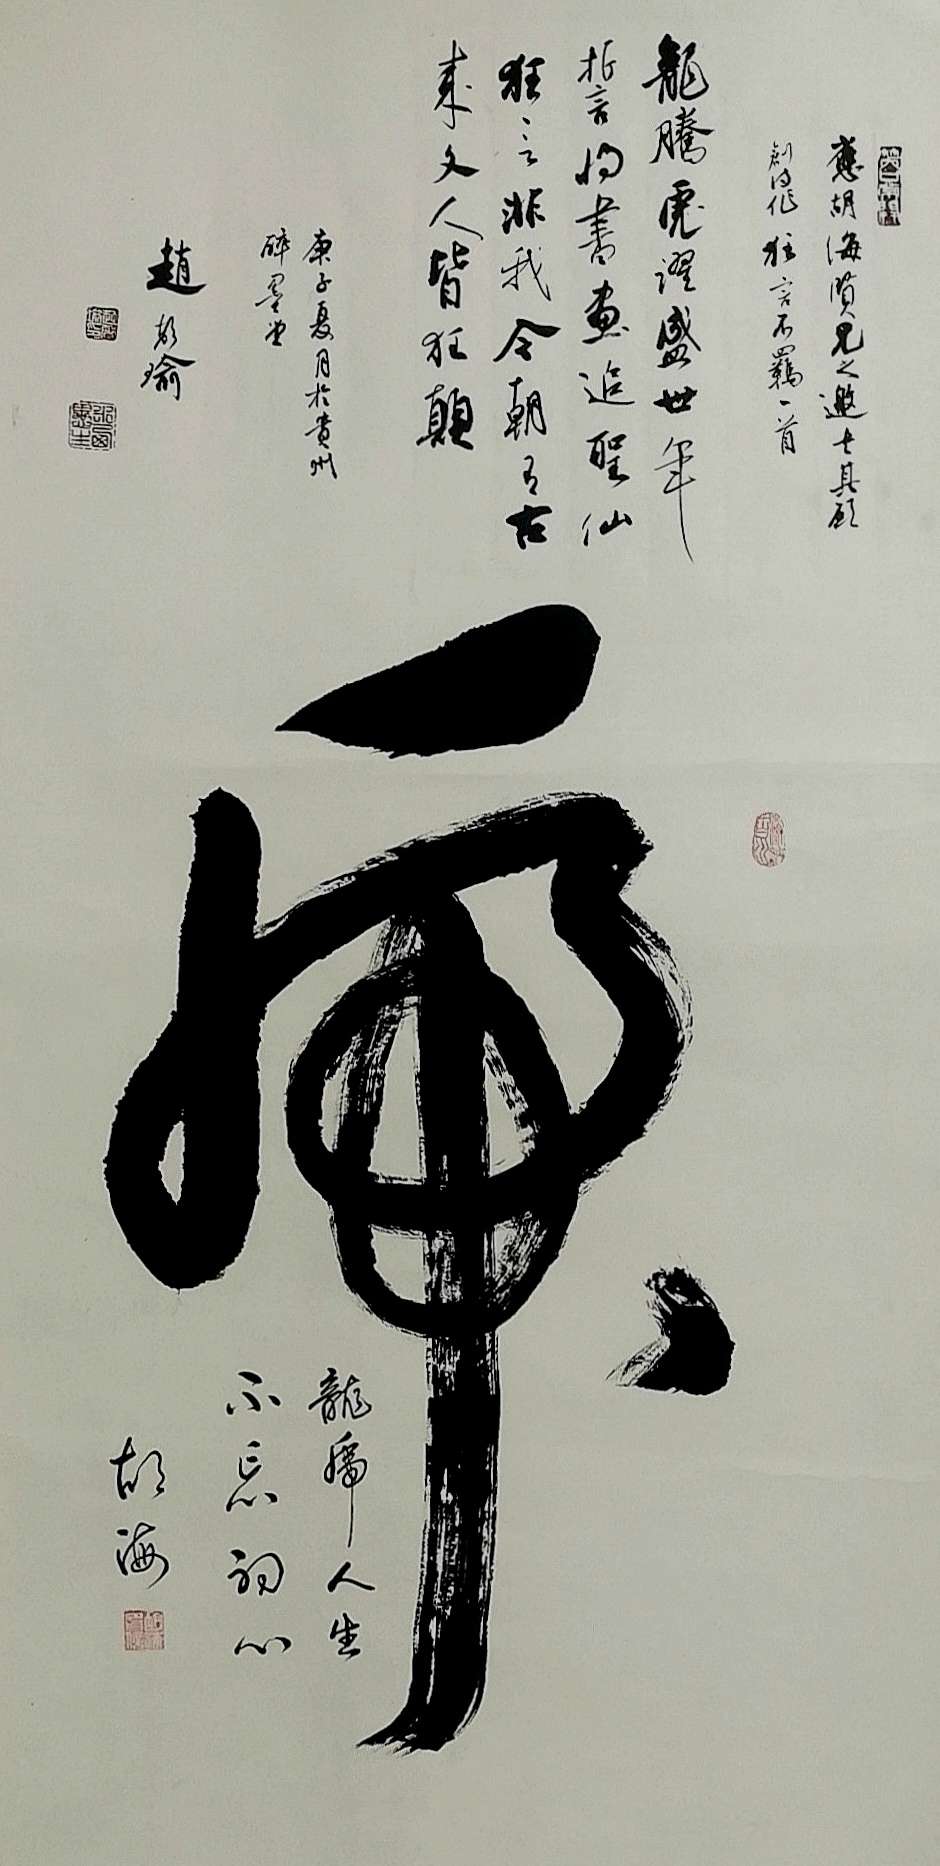 應胡海賢兄之邀其願
創作狂言不羈一首
龍騰虎躍盛世年
誓将書畫追聖仙
狂言非我今朝有古
来文人皆狂顛
庚子夏月於貴州
醉墨堂
趙瑜
虎
龍虎人生
不忘初心
胡海